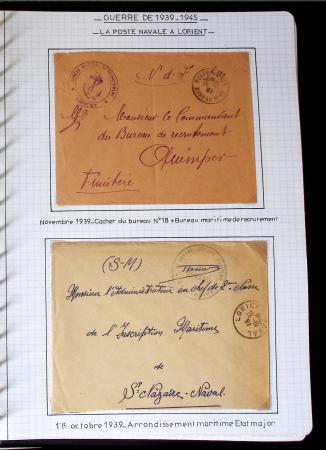 GUERRE DE 1939-1945
LA POSTE NAVALE A LORIENT
N. d. F.
Monsieur le Commandant
du Bureau de recrutement
Quimper
Finistère
Novembre 1939 - Cacher du bureau N°18 + Bureau maritime de recrutement
(S-M)
Monsieur l'Administrateur en chef de 1ère Classe
de l'Inscription Maritime
de
St Nazaire-Naval
LORIENT NAVAL
18 octobre 1939 - Arrondissement maritime Etat major